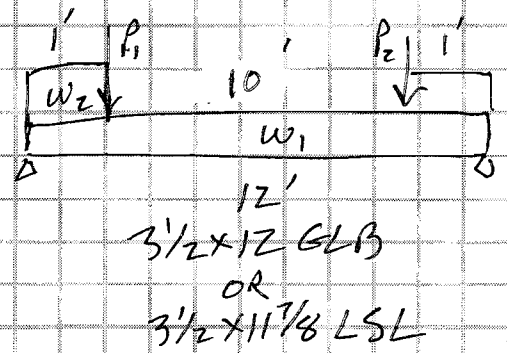 1' P₁ 10' P₂ 1'
w₂
w₁
12'
3½x12 GLB
OR
3½x11⅞ LSL